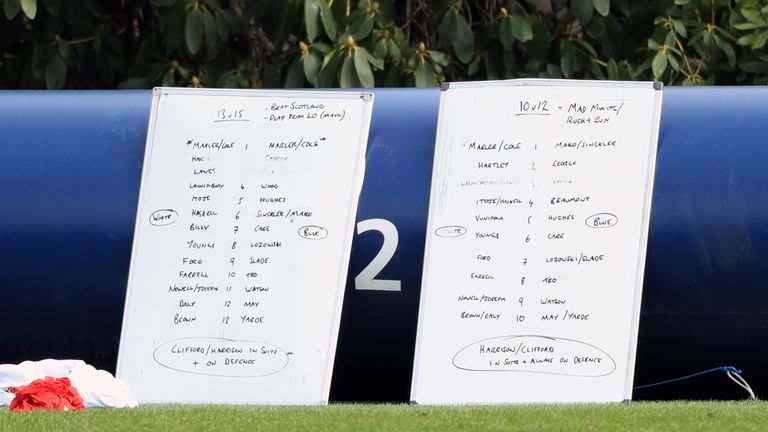 13 v 15 - BEAT SCOTLAND
- PLAY FROM LO (MAUL)
MARLER/COLE 1 MARLER/COLE
2 GEORGE
LAWES 3
LAUNCHBURY 4 WOOD
ITOJE 5 HUGHES
HASKELL 6 SINCKLER/MAKO
WHITE
BILLY 7 CARE
BLUE
YOUNGS 8 LOZOWSKI
FORD 9 SLADE
FARRELL 10 TEO
NOWELL/JOSEPH 11 WATSON
DALY 12 MAY
BROWN 13 YARDE
CLIFFORD/HARRISON IN SUITS
+ ON DEFENCE
2
10 v 12 - MAD MINUTE/
RUCK + RUN
MARLER/COLE 1 MAKO/SINCKLER
HARTLEY 2 GEORGE
3
ITOJE/HASKELL 4 BEAUMONT
VUNIPOLA 5 HUGHES
BLUE
WHITE
YOUNGS 6 CARE
FORD 7 LOZOWSKI/SLADE
FARRELL 8 TEO
NOWELL/JOSEPH 9 WATSON
BROWN/DALY 10 MAY/YARDE
HARRISON/CLIFFORD
IN SUITS + ALWAYS ON DEFENCE.